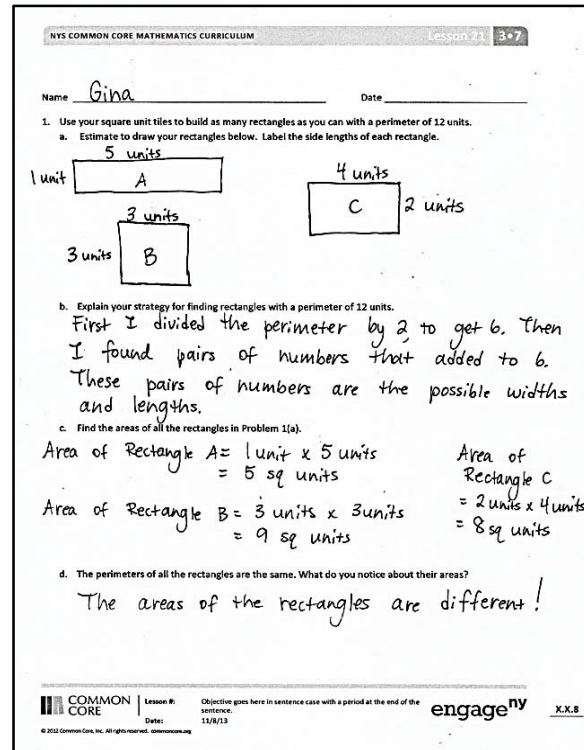 NYS COMMON CORE MATHEMATICS CURRICULUM
Lesson 21
3•7
Name Gina
Date
1. Use your square unit tiles to build as many rectangles as you can with a perimeter of 12 units.
a. Estimate to draw your rectangles below. Label the side lengths of each rectangle.
5 units
1 unit
A
4 units
C
2 units
3 units
3 units
B
b. Explain your strategy for finding rectangles with a perimeter of 12 units.
First I divided the perimeter by 2 to get 6. Then
I found pairs of numbers that added to 6.
These pairs of numbers are the possible widths
and lengths.
c. Find the areas of all the rectangles in Problem 1(a).
Area of Rectangle A = 1 unit x 5 units
= 5 sq units
Area of Rectangle B = 3 units x 3 units
= 9 sq units
Area of
Rectangle C
= 2 units x 4 units
= 8 sq units
d. The perimeters of all the rectangles are the same. What do you notice about their areas?
The areas of the rectangles are different!
COMMON
CORE
Lesson #:
Date:
Objective goes here in sentence case with a period at the end of the
sentence.
11/8/13
engageny
X.X.8
© 2012 Common Core, Inc. All rights reserved. commoncore.org